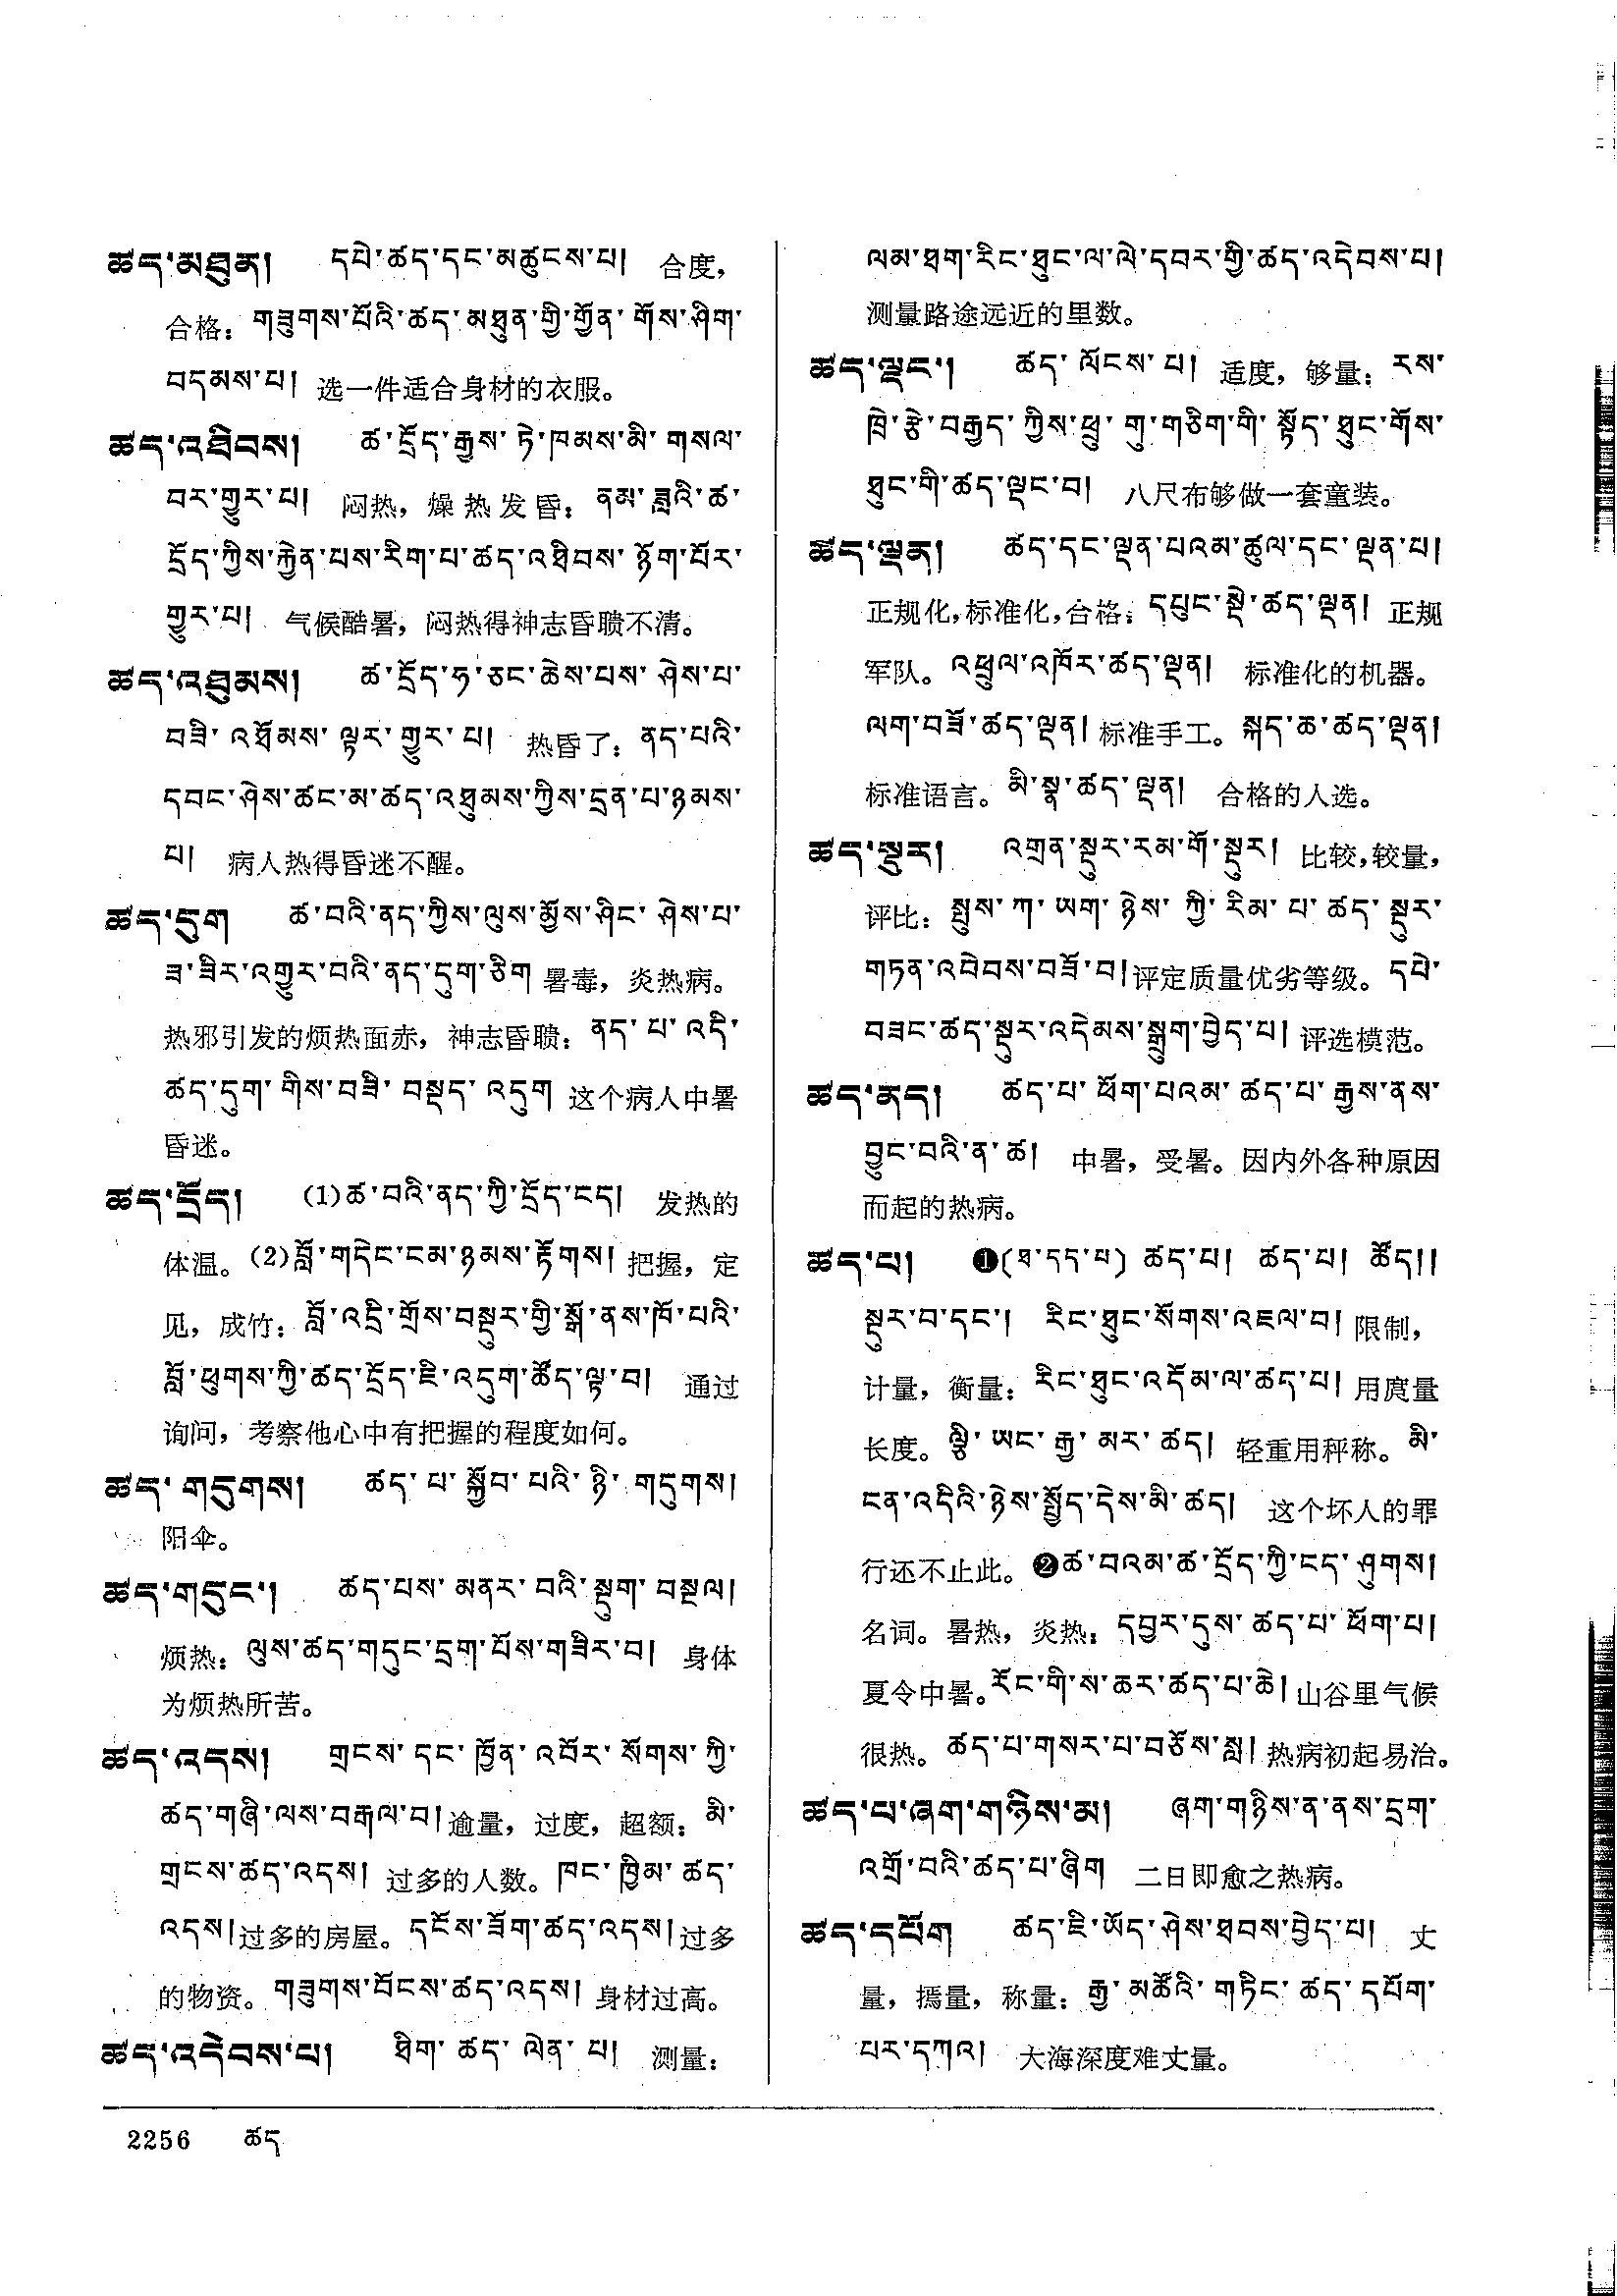 ཚད་མཐུན། དཔེ་ཚད་དང་མཚུངས་པ། 合度，
合格：གཟུགས་པོའི་ཚད་མཐུན་གྱི་གྱོན་གོས་ཤིག་
བདམས་པ། 选一件适合身材的衣服。
ཚད་འཐིབས། ཚ་དྲོད་རྒྱས་ཏེ་ཁམས་མི་གསལ་
བར་གྱུར་པ། 闷热，燥热发昏：ནམ་ཟླའི་ཚ་
དྲོད་ཀྱིས་རྐྱེན་པས་རིག་པ་ཚད་འཐིབས་རྙོག་པོར་
གྱུར་པ། 气候酷暑，闷热得神志昏聩不清。
ཚད་འཐུམས། ཚ་དྲོད་ཧ་ཅང་ཆེས་པས་ཤེས་པ་
བཟི་འཐོམས་ལྟར་གྱུར་པ། 热昏了：ནད་པའི་
དབང་ཤེས་ཚང་མ་ཚད་འཐུམས་ཀྱིས་དྲན་པ་ཉམས་
པ། 病人热得昏迷不醒。
ཚད་དུག ཚ་བའི་ནད་ཀྱིས་ལུས་མྱོས་ཤིང་ཤེས་པ་
ཟ་ཟིར་འགྱུར་བའི་ནད་དུག་ཅིག 暑毒，炎热病。
热邪引发的烦热面赤，神志昏聩：ནད་པ་འདི་
ཚད་དུག་གིས་བཟི་བསྡད་འདུག 这个病人中暑
昏迷。
ཚད་དྲོད། (1)ཚ་བའི་ནད་ཀྱི་དྲོད་ངད། 发热的
体温。(2)བློ་གདེང་ངམ་ཉམས་རྟོགས། 把握，定
见，成竹：བློ་འདྲི་གྲོས་བསྡུར་གྱི་སྒོ་ནས་ཁོ་པའི་
བློ་ཕུགས་ཀྱི་ཚད་དྲོད་ཇི་འདུག་ཚོད་ལྟ་བ། 通过
询问，考察他心中有把握的程度如何。
ཚད་གདུགས། ཚད་པ་སྐྱོབ་པའི་ཉི་གདུགས།
阳伞。
ཚད་གདུང་། ཚད་པས་མནར་བའི་སྡུག་བསྔལ།
烦热：ལུས་ཚད་གདུང་དྲག་པོས་གཟིར་བ། 身体
为烦热所苦。
ཚད་འདས། གྲངས་དང་ཁྱོན་འབོར་སོགས་ཀྱི་
ཚད་གཞི་ལས་བརྒལ་བ། 逾量，过度，超额：མི་
གྲངས་ཚད་འདས། 过多的人数。ཁང་ཁྱིམ་ཚད་
འདས། 过多的房屋。དངོས་ཟོག་ཚད་འདས། 过多
的物资。གཟུགས་བོངས་ཚད་འདས། 身材过高。
ཚད་འདེབས་པ། ཐིག་ཚད་ལེན་པ། 测量：
ལམ་ཐག་རིང་ཐུང་ལ་ལེ་དབར་གྱི་ཚད་འདེབས་པ།
测量路途远近的里数。
ཚད་ལྡང་། ཚད་ལོངས་པ། 适度，够量：རས་
ཁྲེ་རྩེ་བརྒྱད་ཀྱིས་ཕྲུ་གུ་གཅིག་གི་སྟོད་ཐུང་གོས་
ཐུང་གི་ཚད་ལྡང་བ། 八尺布够做一套童装。
ཚད་ལྡན། ཚད་དང་ལྡན་པའམ་ཚུལ་དང་ལྡན་པ།
正规化，标准化，合格：དཔུང་སྡེ་ཚད་ལྡན། 正规
军队。འཕྲུལ་འཁོར་ཚད་ལྡན། 标准化的机器。
ལག་བཟོ་ཚད་ལྡན། 标准手工。སྐད་ཆ་ཚད་ལྡན།
标准语言。མི་སྣ་ཚད་ལྡན། 合格的人选。
ཚད་སྡུར། འགྲན་སྡུར་རམ་གོ་སྡུར། 比较，较量，
评比：སྤུས་ཀ་ཡག་ཉེས་ཀྱི་རིམ་པ་ཚད་སྡུར་
གཏན་འབེབས་བཟོ་བ། 评定质量优劣等级。དཔེ་
བཟང་ཚད་སྡུར་འདེམས་སྒྲུག་བྱེད་པ། 评选模范。
ཚད་ནད། ཚད་པ་ཕོག་པའམ་ཚད་པ་རྒྱས་ནས་
བྱུང་བའི་ན་ཚ། 中暑，受暑。因内外各种原因
而起的热病。
ཚད་པ། ❶(ཐ་དད་པ) ཚད་པ། ཚད་པ། ཚོད།།
སྡུར་བ་དང་། རིང་ཐུང་སོགས་འཇལ་བ། 限制，
计量，衡量：རིང་ཐུང་འདོམ་ལ་ཚད་པ། 用庹量
长度。ལྕི་ཡང་རྒྱ་མར་ཚད། 轻重用秤称。མི་
ངན་འདིའི་ཉེས་སྤྱོད་དེས་མི་ཚད། 这个坏人的罪
行还不止此。❷ཚ་བའམ་ཚ་དྲོད་ཀྱི་ངད་ཤུགས།
名词。暑热，炎热：དབྱར་དུས་ཚད་པ་ཕོག་པ།
夏令中暑。རོང་གི་ས་ཆར་ཚད་པ་ཆེ། 山谷里气候
很热。ཚད་པ་གསར་པ་བཅོས་སླ། 热病初起易治。
ཚད་པ་ཞག་གཉིས་མ། ཞག་གཉིས་ན་ནས་དྲག་
འགྲོ་བའི་ཚད་པ་ཞིག 二日即愈之热病。
ཚད་དཔོག ཚད་ཇི་ཡོད་ཤེས་ཐབས་བྱེད་པ། 丈
量，㧻量，称量：རྒྱ་མཚོའི་གཏིང་ཚད་དཔོག་
པར་དཀའ། 大海深度难丈量。
2256 ཚད